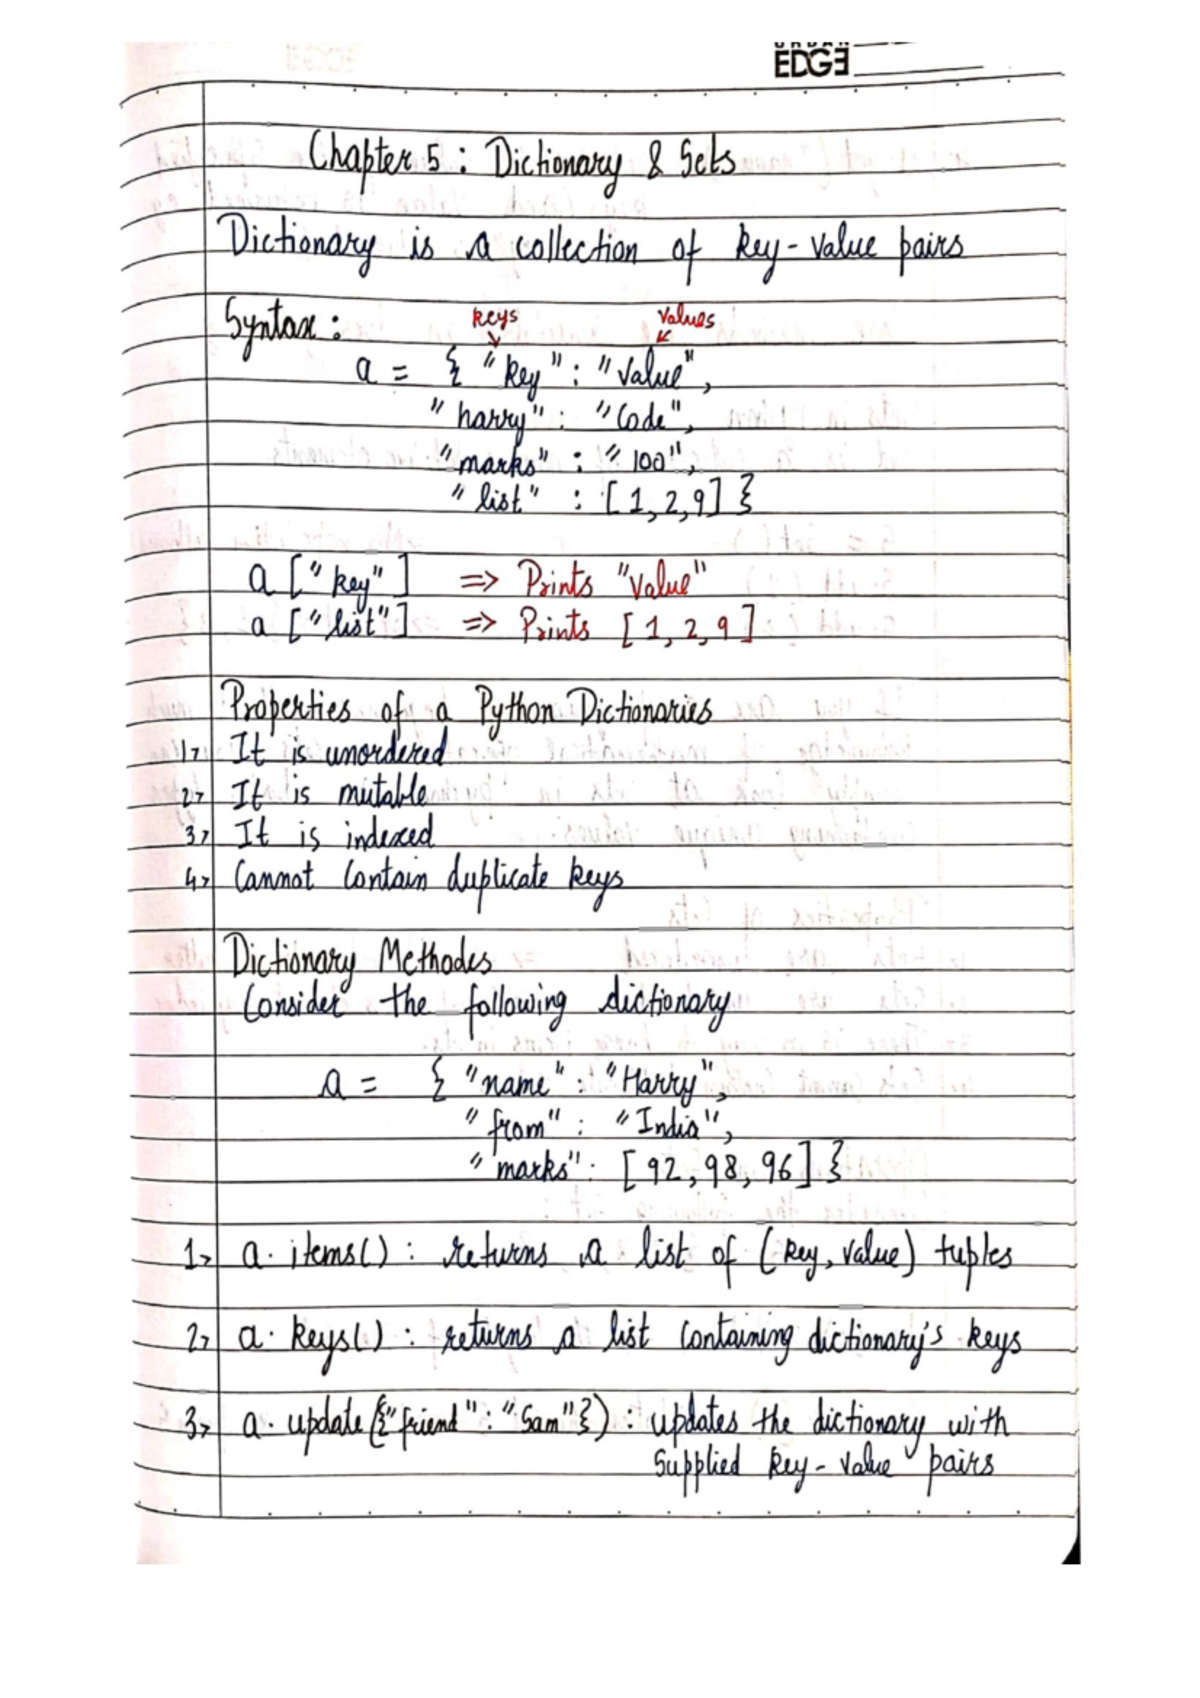 URBAN
EDGE
Chapter 5 : Dictionary & Sets
Dictionary is a collection of key-value pairs
Syntax :
keys values
a = { "key" : "value",
"harry" : "Code",
"marks" : "100",
"list" : [1,2,9] }
a ["key"] => Prints "value"
a ["list"] => Prints [1, 2, 9]
Properties of a Python Dictionaries
1> It is unordered
2> It is mutable
3> It is indexed
4> Cannot Contain duplicate keys
Dictionary Methodes
Consider the following dictionary
a = { "name" : "Harry",
"from" : "India",
"marks" : [92, 98, 96] }
1> a. items() : returns a list of (key, value) tuples
2> a. keys() : returns a list Containing dictionary's keys
3> a. update ({"friend" : "Sam"}) : updates the dictionary with
Supplied key-value pairs